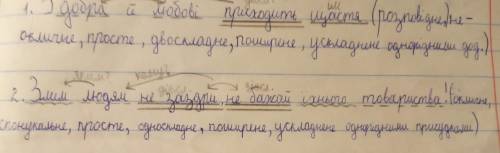 що
1. З добра й любові приходить щастя (розповідне, не-
окличне, просте, двоскладне, поширене, ускладнене однорідними дод.)
яким? кому?
2. Злим людям не заздри, не бажай їхнього товариства! (окличне,
спонукальне, просте, односкладне, поширене, ускладнене однорідними присудками)